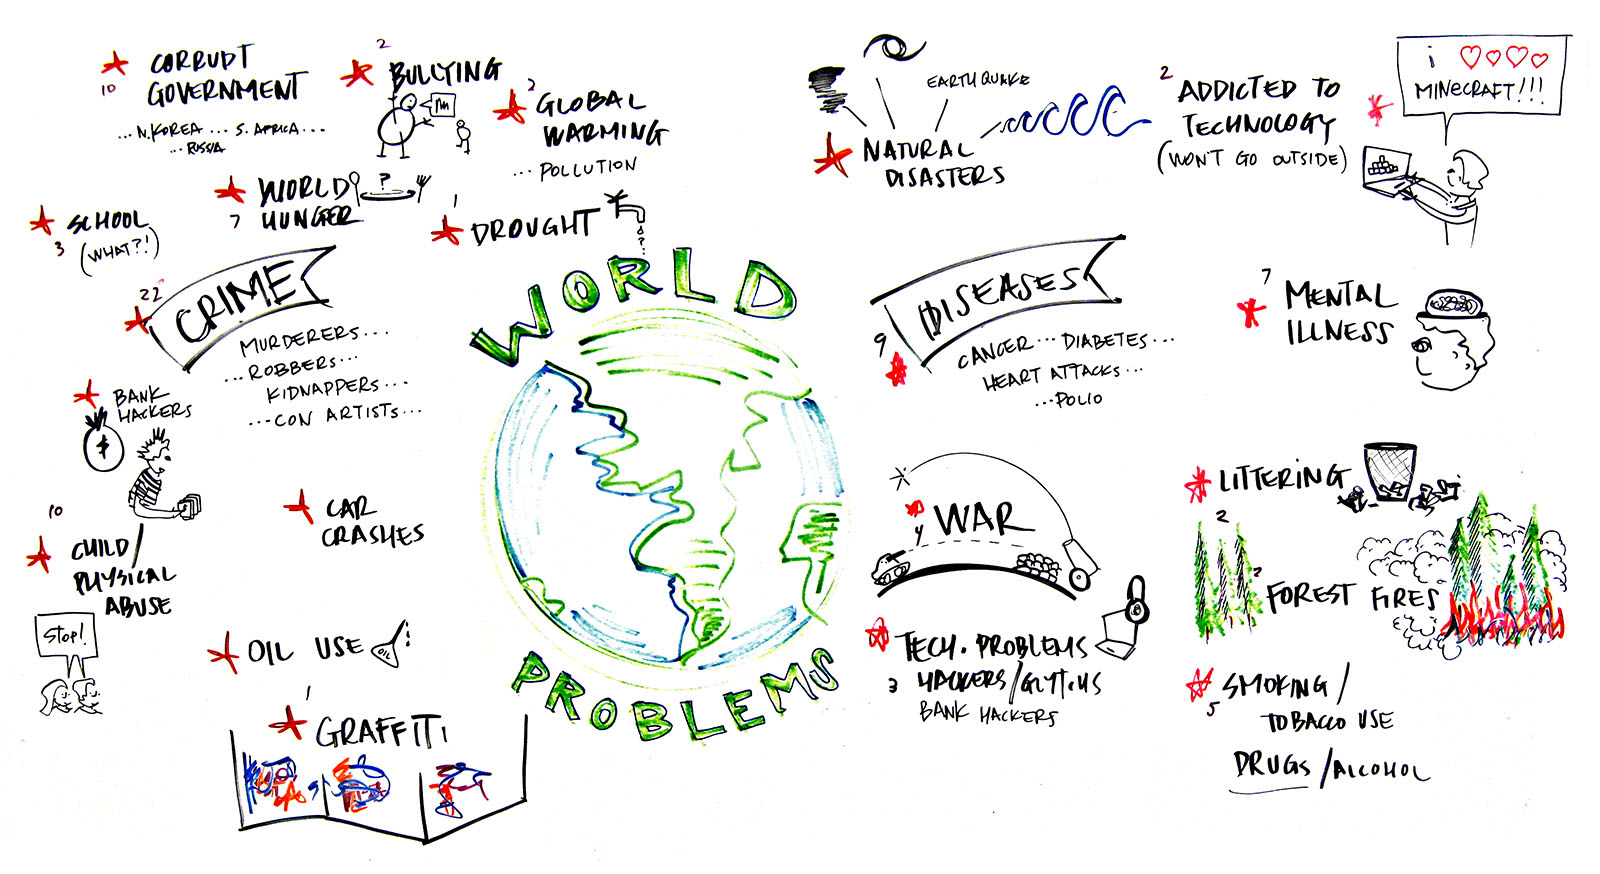 10
CORRUPT
GOVERNMENT
... N. KOREA ... S. AFRICA ...
... RUSSIA
2
BULLYING
2
GLOBAL
WARMING
... POLLUTION
WORLD
7 HUNGER
?
1
DROUGHT
?
SCHOOL
3 (WHAT?!)
22
CRIME
MURDERERS...
...ROBBERS...
KIDNAPPERS...
...CON ARTISTS...
BANK
HACKERS
$
10
CHILD/
PHYSICAL
ABUSE
STOP!
CAR
CRASHES
OIL USE
OIL
1
GRAFFITI
WORLD
PROBLEMS
EARTHQUAKE
NATURAL
DISASTERS
2
ADDICTED TO
TECHNOLOGY
(WON'T GO OUTSIDE)
i
MINECRAFT!!!
9
DISEASES
CANCER... DIABETES...
HEART ATTACKS...
...POLIO
7
MENTAL
ILLNESS
4
WAR
TECH. PROBLEMS
3 HACKERS/GLITCHES
BANK HACKERS
LITTERING
2
2
FOREST FIRES
SMOKING/
5
TOBACCO USE
DRUGS/ALCOHOL